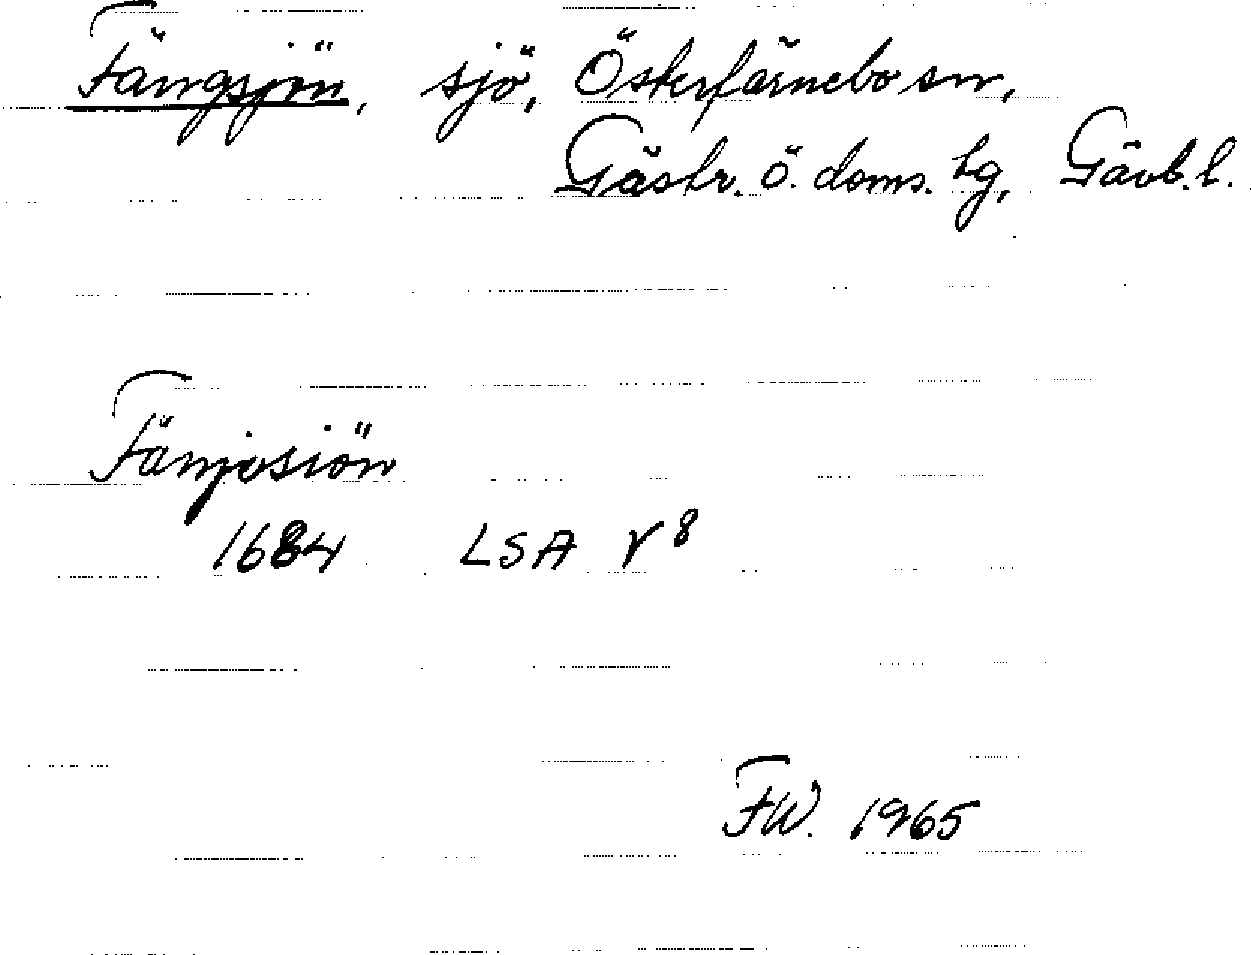 Fängsjön, sjö, Österfärnebo sn,
Gästr. ö. doms. tg, Gävb. l.
Fänjesiön
1684 LSA V 8
FW. 1965